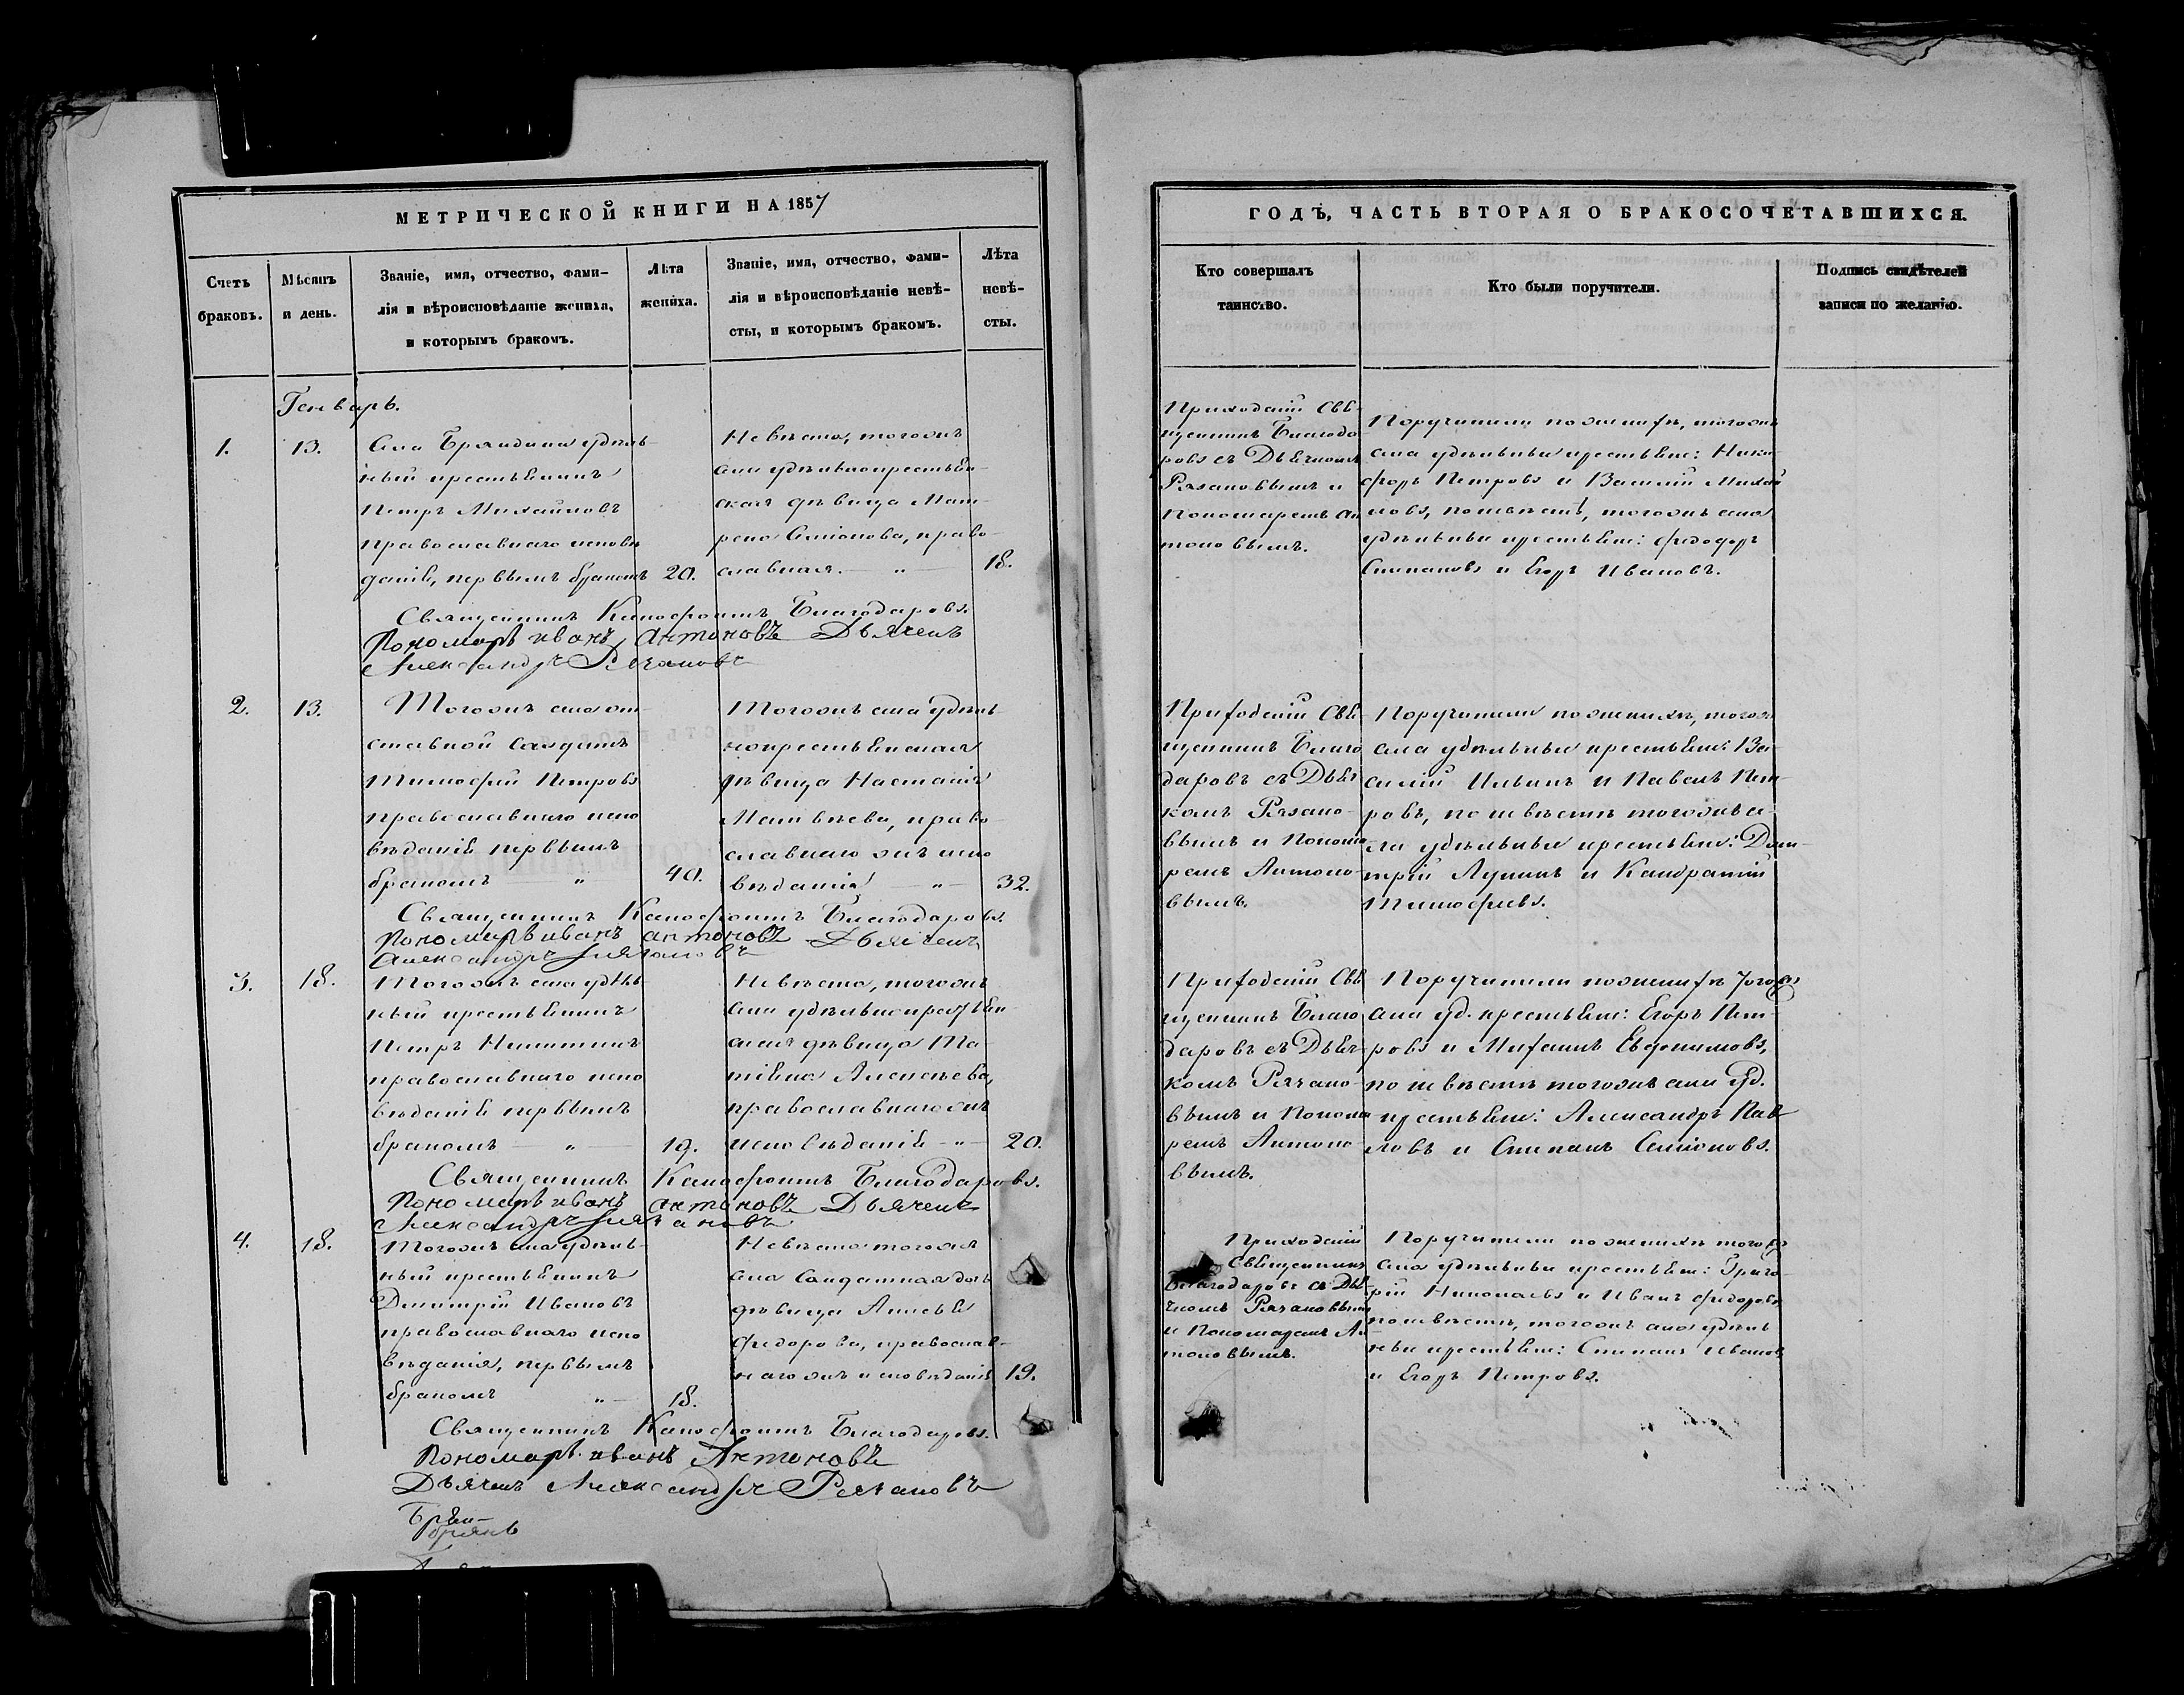 МЕТРИЧЕСКОЙ КНИГИ НА 1857
Счетъ браковъ.
Мѣсяцъ и день.
Званіе, имя, отчество, фами-
лія и вѣроисповѣданіе жениха,
и которымъ бракомъ.
Лѣта
жениха.
Званіе, имя, отчество, фами-
лія и вѣроисповѣданіе невѣ-
сты, и которымъ бракомъ.
Лѣта
невѣ-
сты.
Генварь.
1.
13.
Села удѣль-
ный крестьянинъ
Петръ Михайловъ
православнаго исповѣ
данія, первымъ бракомъ
20.
Невѣста, тогожъ
села удѣльнокрестьян-
ская дѣвица Мат-
рена Семіонова, право-
славная. — „ —
18.
Священникъ Ксенофонтъ Благодаровъ.
Пономарь иванъ антоновъ Дьячекъ
Александръ Рязановъ
2.
13.
Тогожъ села от-
ставной Салдатъ
Тимофей Петровъ
православнаго испо
вѣданія первымъ
бракомъ — „
40.
Тогожъ села удѣль-
нокрестьянская
дѣвица Настасія
Матвѣева, право
славнаго жъ испо
вѣданія — „ —
32.
Священникъ Ксенофонтъ Благодаровъ.
Пономарь иванъ антоновъ Дьячекъ
Александръ Рязановъ
3.
18.
Тогожъ села удѣль
ный крестьянинъ
Петръ Никитинъ
православнаго испо
вѣданія первымъ
бракомъ — „ —
19.
Невѣста, тогожъ
села удѣльнокрестьян-
ская дѣвица Та-
тіяна Алексѣева,
православнагожъ
исповѣданія — „ —
20.
Священникъ Ксенофонтъ Благодаровъ.
Пономарь иванъ антоновъ Дьячекъ
Александръ Рязановъ
4.
18.
Тогожъ села удѣль-
ный крестьянинъ
Димитрій Ивановъ
православнаго испо
вѣданія, первымъ
бракомъ „ —
18.
Невѣста тогожъ
села Салдатская дочь
дѣвица
Федорова, православ-
нагожъ исповѣданія
19.
Священникъ Ксенофонтъ Благодаровъ.
Пономарь иванъ Антоновъ
Дьячекъ Александръ Рязановъ
ГОДЪ, ЧАСТЬ ВТОРАЯ О БРАКОСОЧЕТАВШИХСЯ.
Кто совершалъ
таинство.
Кто были поручители.
Подпись свидѣтелей
записи по желанію.
Приходскій Свя-
щенникъ Благода
ровъ съ Дьячкомъ
Рязановымъ и
Пономаремъ Ан
тоновымъ.
Поручители по женихѣ, тогожъ
села удѣльныи крестьяне: Ники-
форъ Петровъ и Василій Михай
ловъ, по невѣстѣ, тогожъ села
удѣльныи крестьяне: Феодоръ
Степановъ и Егоръ Ивановъ.
Приходскій Свя-
щенникъ Благо
даровъ съ Дьяч
комъ Рязано-
вымъ и Понома
ремъ Антоно-
вымъ.
Поручители по женихѣ, тогожъ
села удѣльныи крестьяне: Ва-
силій Ильинъ и Павелъ Пет-
ровъ, по невѣстѣ тогожъ се-
ла удѣльныи крестьяне: Дми-
трій Лупинъ и Кандратій
Тимофеевъ.
Приходскій Свя
щенникъ Благо
даровъ съ Дьяч-
комъ Рязано-
вымъ и Понома
ремъ Антоно-
вымъ.
Поручители по женихѣ тогожъ
села уд. крестьяне: Егоръ Пет-
ровъ и Михаилъ Евдокимовъ,
по невѣстѣ тогожъ села уд.
крестьяне: Александръ Пав
ловъ и Степанъ Семіоновъ.
Приходскій
Священникъ
Благодаровъ съ Дья
чкомъ Рязановымъ
и Пономаремъ Ан
тоновымъ.
Поручители по женихѣ тогожъ
села удѣльныи крестьяне: Григо-
рій Николаевъ и Иванъ Федоровъ,
по невѣстѣ, тогожъ села удѣль
ныи крестьяне: Степанъ Ивановъ
и Егоръ Петровъ.